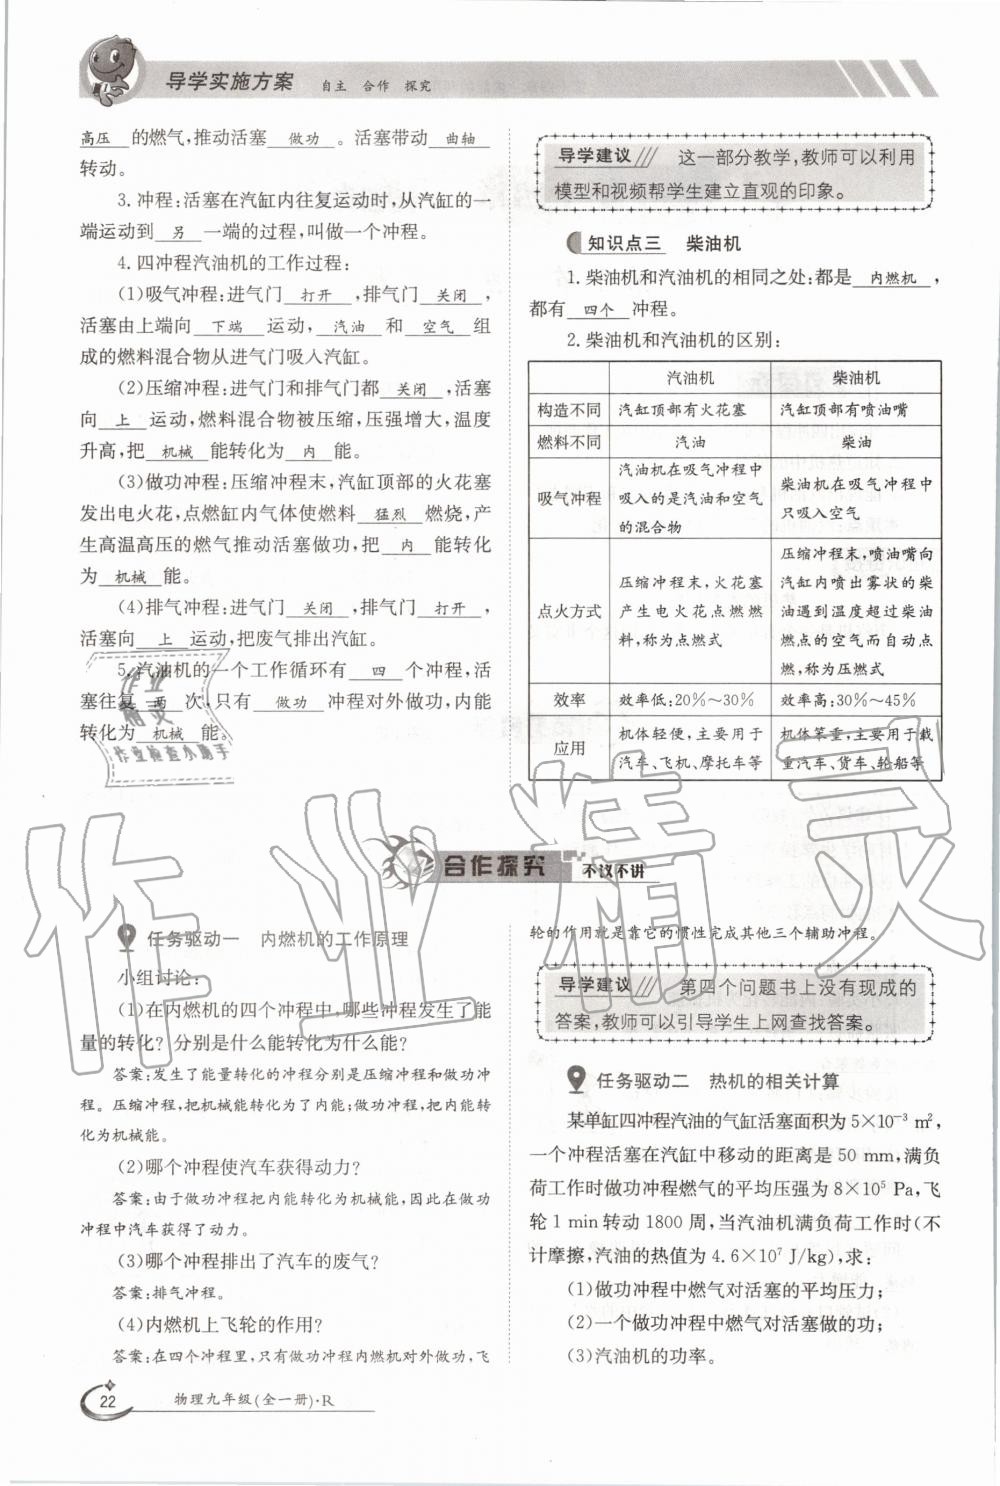 导学实施方案 自主 合作 探究
高压 的燃气,推动活塞 做功 。活塞带动 曲轴
转动。
3. 冲程:活塞在汽缸内往复运动时,从汽缸的一
端运动到 另 一端的过程,叫做一个冲程。
4. 四冲程汽油机的工作过程:
(1)吸气冲程:进气门 打开 ,排气门 关闭 ,
活塞由上端向 下端 运动, 汽油 和 空气 组
成的燃料混合物从进气门吸入汽缸。
(2)压缩冲程:进气门和排气门都 关闭 ,活塞
向 上 运动,燃料混合物被压缩,压强增大,温度
升高,把 机械 能转化为 内 能。
(3)做功冲程:压缩冲程末,汽缸顶部的火花塞
发出电火花,点燃缸内气体使燃料 猛烈 燃烧,产
生高温高压的燃气推动活塞做功,把 内 能转化
为 机械 能。
(4)排气冲程:进气门 关闭 ,排气门 打开 ,
活塞向 上 运动,把废气排出汽缸。
5. 汽油机的一个工作循环有 四 个冲程,活
塞往复 两 次,只有 做功 冲程对外做功,内能
转化为 机械 能。
导学建议 这一部分教学,教师可以利用
模型和视频帮学生建立直观的印象。
知识点三 柴油机
1. 柴油机和汽油机的相同之处:都是 内燃机 ,
都有 四个 冲程。
2. 柴油机和汽油机的区别:
汽油机 柴油机
构造不同 汽缸顶部有火花塞 汽缸顶部有喷油嘴
燃料不同 汽油 柴油
吸气冲程 汽油机在吸气冲程中
吸入的是汽油和空气
的混合物
柴油机在吸气冲程中
只吸入空气
点火方式 压缩冲程末,火花塞
产生电火花点燃燃
料,称为点燃式
压缩冲程末,喷油嘴向
汽缸内喷出雾状的柴
油遇到温度超过柴油
燃点的空气而自动点
燃,称为压燃式
效率 效率低:20%～30% 效率高:30%～45%
应用 机体轻便,主要用于
汽车、飞机、摩托车等
机体笨重,主要用于载
重汽车、货车、轮船等
作业
精灵
作业检查小助手
作业精灵
合作探究 不议不讲
任务驱动一 内燃机的工作原理
小组讨论:
(1)在内燃机的四个冲程中,哪些冲程发生了能
量的转化? 分别是什么能转化为什么能?
答案:发生了能量转化的冲程分别是压缩冲程和做功冲
程。压缩冲程,把机械能转化为了内能;做功冲程,把内能转
化为机械能。
(2)哪个冲程使汽车获得动力?
答案:由于做功冲程把内能转化为机械能,因此在做功
冲程中汽车获得了动力。
(3)哪个冲程排出了汽车的废气?
答案:排气冲程。
(4)内燃机上飞轮的作用?
答案:在四个冲程里,只有做功冲程内燃机对外做功,飞
轮的作用就是靠它的惯性完成其他三个辅助冲程。
导学建议 第四个问题书上没有现成的
答案,教师可以引导学生上网查找答案。
任务驱动二 热机的相关计算
某单缸四冲程汽油的气缸活塞面积为 5×10⁻³ m²,
一个冲程活塞在汽缸中移动的距离是 50 mm,满负
荷工作时做功冲程燃气的平均压强为 8×10⁵ Pa,飞
轮 1 min 转动 1800 周,当汽油机满负荷工作时(不
计摩擦,汽油的热值为 4.6×10⁷ J/kg),求:
(1)做功冲程中燃气对活塞的平均压力;
(2)一个做功冲程中燃气对活塞做的功;
(3)汽油机的功率。
22 物理九年级(全一册)·R